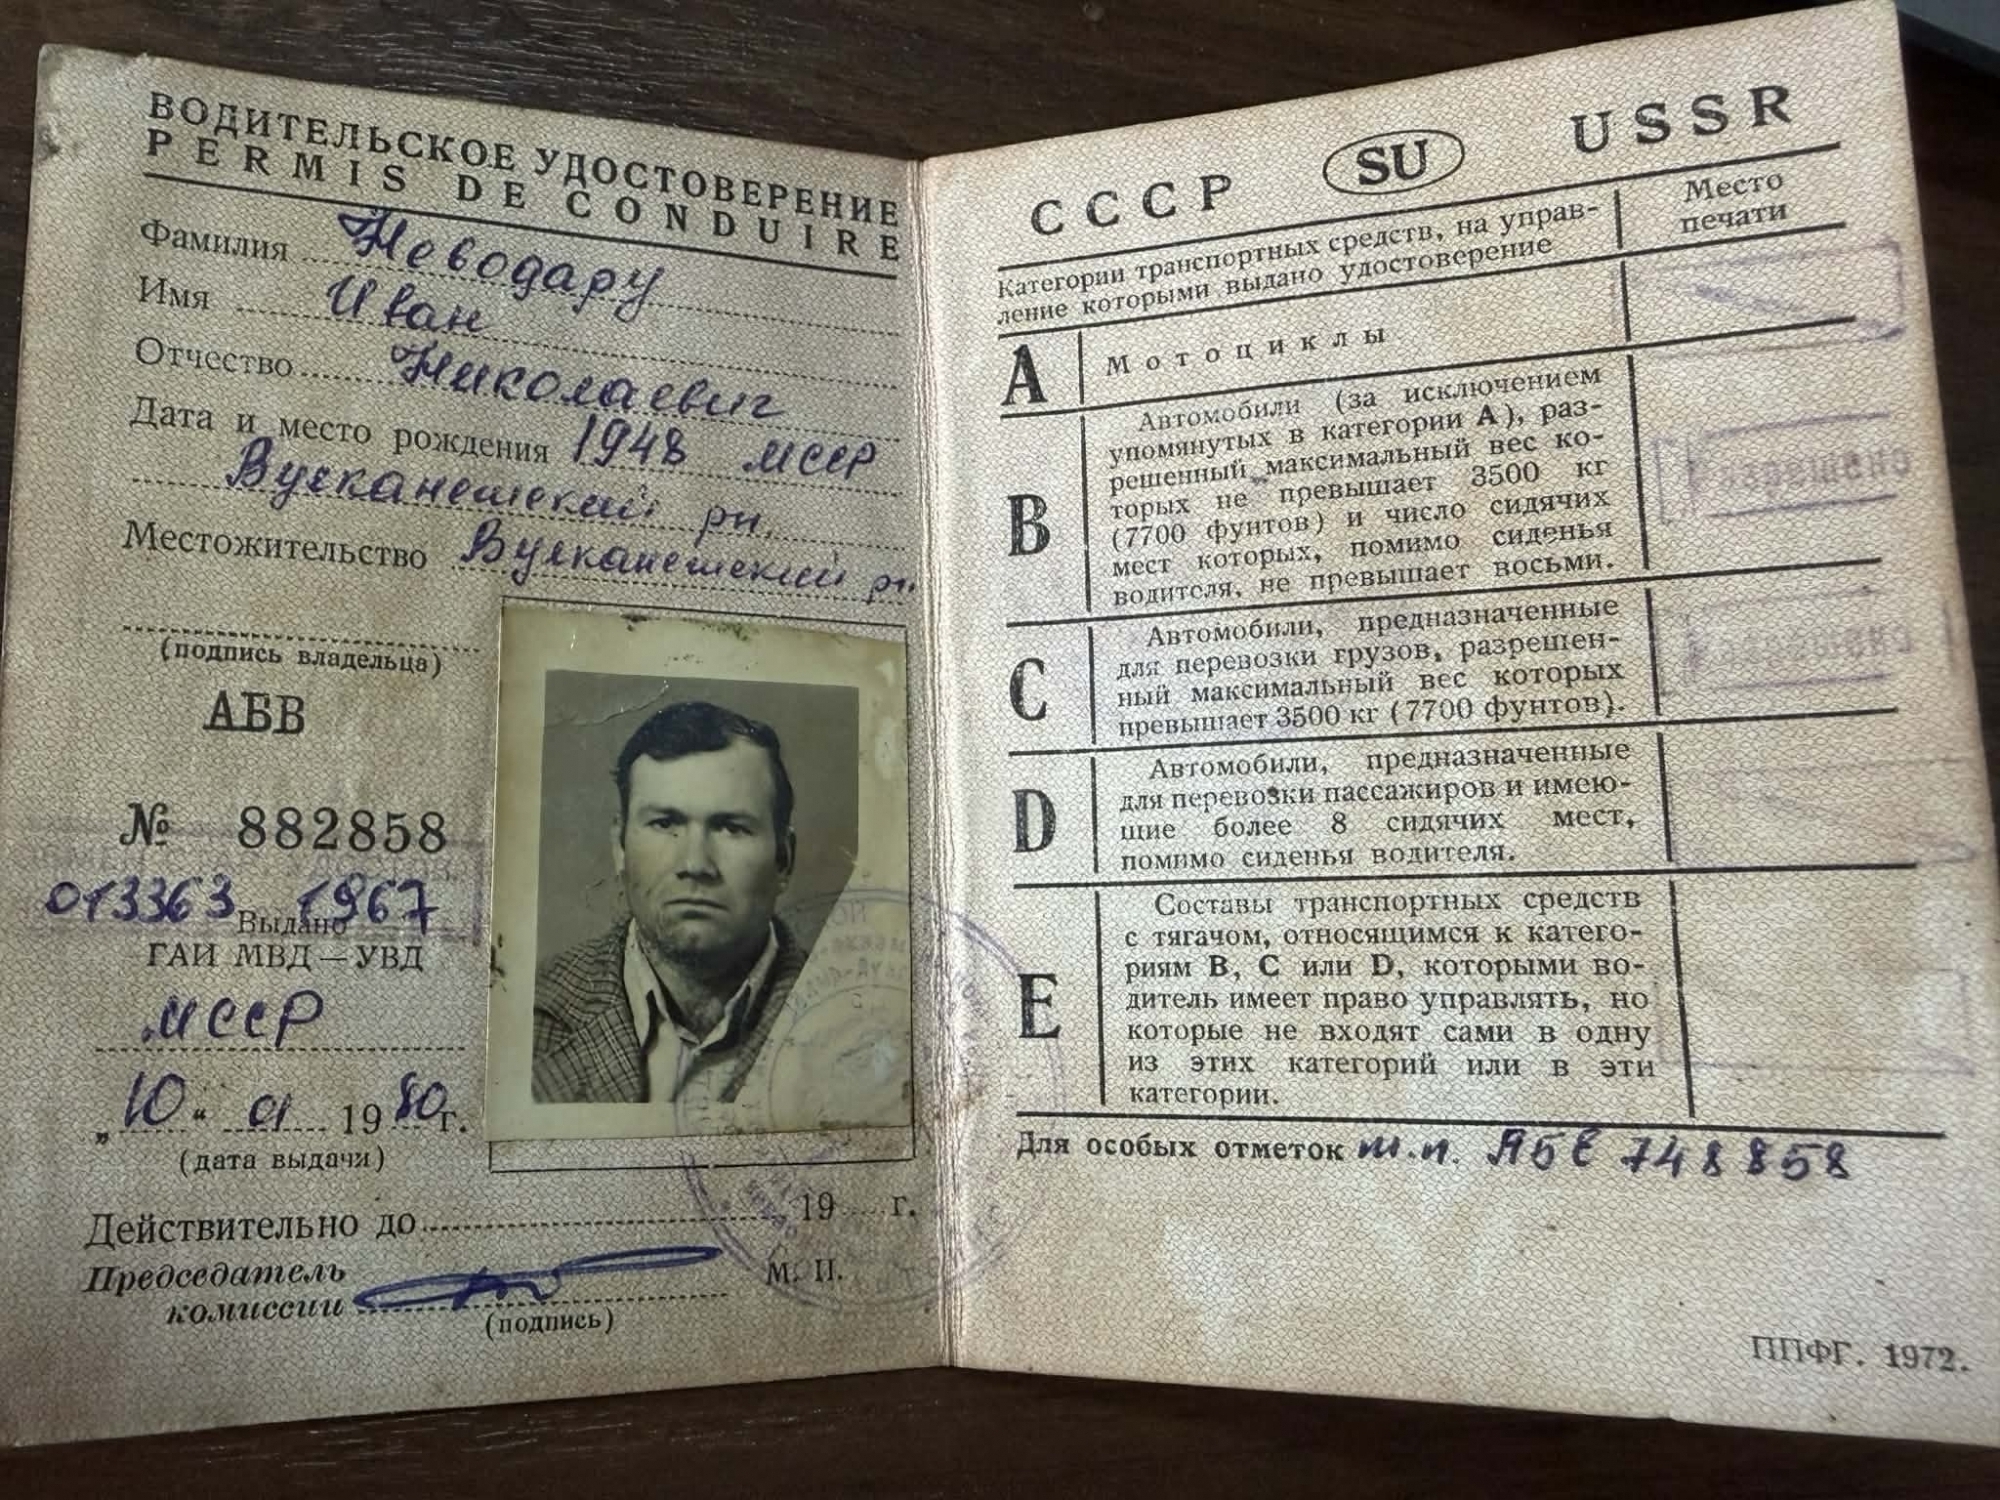 ВОДИТЕЛЬСКОЕ УДОСТОВЕРЕНИЕ
PERMIS DE CONDUIRE
Фамилия Новодару
Имя Иван
Отчество Николаевич
Дата и место рождения 1948 МССР
Вулканешский рн.
Местожительство Вулканешский рн.
(подпись владельца)
АБВ
№ 882858
013363 1967
Выдано
ГАИ МВД—УВД
МССР
„10“ 01 1980г.
(дата выдачи)
Действительно до 19 г.
Председатель
комиссии
М. П.
(подпись)
СССР SU USSR
Категории транспортных средств, на управ-
ление которыми выдано удостоверение
Место
печати
A Мотоциклы
B
Автомобили (за исключением
упомянутых в категории А), раз-
решенный максимальный вес ко-
торых не превышает 3500 кг
(7700 фунтов) и число сидячих
мест которых, помимо сиденья
водителя, не превышает восьми.
C
Автомобили, предназначенные
для перевозки грузов, разрешен-
ный максимальный вес которых
превышает 3500 кг (7700 фунтов).
D
Автомобили, предназначенные
для перевозки пассажиров и имею-
щие более 8 сидячих мест,
помимо сиденья водителя.
E
Составы транспортных средств
с тягачом, относящимся к катего-
риям В, С или D, которыми во-
дитель имеет право управлять, но
которые не входят сами в одну
из этих категорий или в эти
категории.
Для особых отметок т.п. АБЕ 748858
ППФГ. 1972.